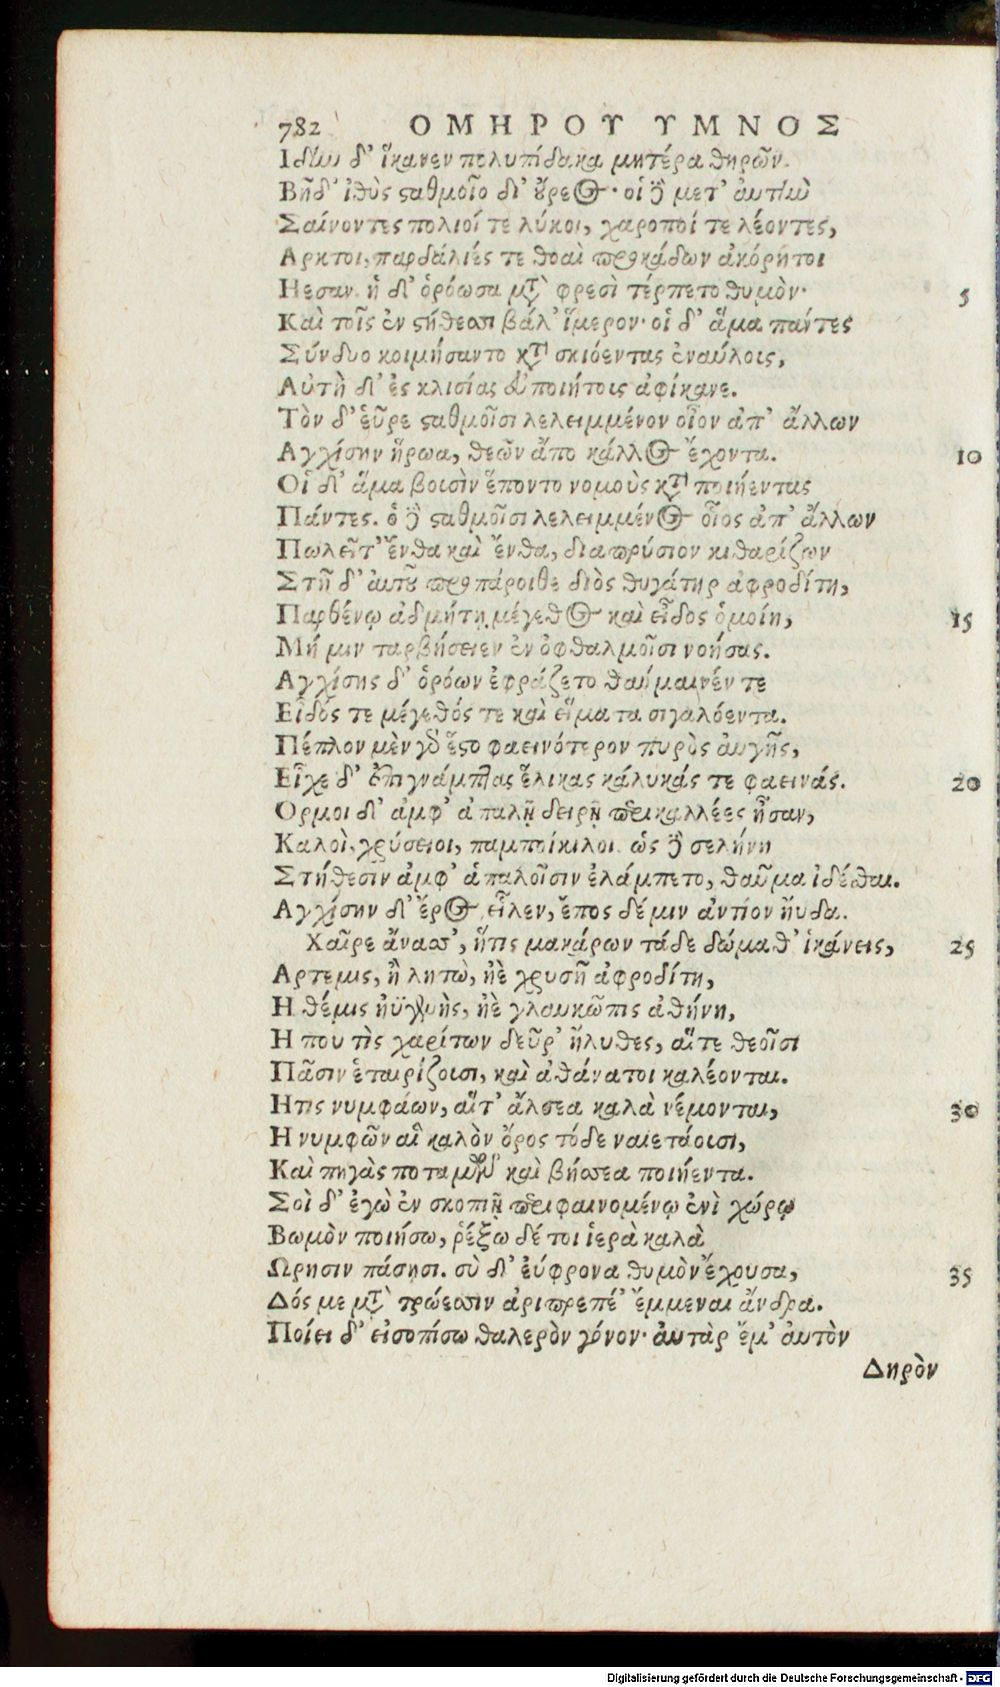 782 ΟΜΗΡΟΥ ΥΜΝΟΣ
Ιδίω δ' ἵκανεν πολυπίδακα μητέρα θηρῶν.
Βῆδ' ἰθὺς ςαθμοῖο δι' ὄρεος· οἱ δὲ μετ' αὐτὴν
Σαίνοντες πολιοί τε λύκοι, χαροποί τε λέοντες,
Αρκτοι, παρδάλιές τε θοαὶ προκάδων ἀκόρητοι
Ηεσαν. ἡ δ' ὁρόωσα μετὰ φρεσὶ τέρπετο θυμὸν· 5
Καὶ τοῖς ἐν ςήθεσσι βάλ' ἵμερον· οἱ δ' ἅμα πάντες
Σύνδυο κοιμήσαντο κατὰ σκιόεντας ἐναύλοις,
Αὐτὴ δ' ἐς κλισίας εὐποιήτοις ἀφίκανε.
Τὸν δ' εὗρε ςαθμοῖσι λελειμμένον οἶον ἀπ' ἄλλων
Αγχίσην ἥρωα, θεῶν ἄπο κάλλος ἔχοντα. 10
Οἱ δ' ἅμα βοισὶν ἕποντο νομοὺς κατὰ ποιήεντας
Πάντες. ὁ δὲ ςαθμοῖσι λελειμμένος οἶος ἀπ' ἄλλων
Πωλεῖτ' ἔνθα καὶ ἔνθα, διαπρύσιον κιθαρίζων
Στῆ δ' αὐτοῦ προπάροιθε διὸς θυγάτηρ ἀφροδίτη,
Παρθένῳ ἀδμήτῃ μέγεθος καὶ εἶδος ὁμοίη, 15
Μή μιν ταρβήσειεν ἐν ὀφθαλμοῖσι νοήσας.
Αγχίσης δ' ὁρόων ἐφράζετο θαύμαινέν τε
Εἶδός τε μέγεθός τε καὶ εἵματα σιγαλόεντα.
Πέπλον μὲν γὰρ ἕεςο φαεινότερον πυρὸς αὐγῆς,
Εἶχε δ' ἐπιγνάμπτας ἕλικας κάλυκάς τε φαεινάς. 20
Ορμοι δ' ἀμφ' ἁπαλῇ δειρῇ περικαλλέες ἦσαν,
Καλοὶ, χρύσειοι, παμποίκιλοι. ὡς δὲ σελήνη
Στήθεσιν ἀμφ' ἁπαλοῖσιν ἐλάμπετο, θαῦμα ἰδέσθαι.
Αγχίσην δ' ἔρος εἷλεν, ἔπος δέ μιν ἀντίον ηὔδα.
Χαῖρε ἄνασσ', ἥτις μακάρων τάδε δώμαθ' ἱκάνεις, 25
Αρτεμις, ἢ λητὼ, ἠὲ χρυσῆ ἀφροδίτη,
Η θέμις ἠϋγενὴς, ἠὲ γλαυκῶπις ἀθήνη,
Η που τὶς χαρίτων δεῦρ' ἤλυθες, αἵτε θεοῖσι
Πᾶσιν ἑταιρίζουσι, καὶ ἀθάνατοι καλέονται.
Ητις νυμφάων, αἵτ' ἄλσεα καλὰ νέμονται, 30
Η νυμφῶν αἳ καλὸν ὄρος τόδε ναιετάουσι,
Καὶ πηγὰς ποταμῶν καὶ βήσσεα ποιήεντα.
Σοὶ δ' ἐγὼ ἐν σκοπιῇ περιφαινομένῳ ἐνὶ χώρῳ
Βωμὸν ποιήσω, ῥέξω δέ τοι ἱερὰ καλὰ
Ωρησιν πάσῃσι. σὺ δ' ἐύφρονα θυμὸν ἔχουσα, 35
Δός με μετὰ τρώεσσιν ἀριπρεπέ' ἔμμεναι ἄνδρα.
Ποίει δ' εἰσοπίσω θαλερὸν γόνον· αὐτὰρ ἔμ' αὐτὸν
Δηρὸν
Digitalisierung gefördert durch die Deutsche Forschungsgemeinschaft - DFG